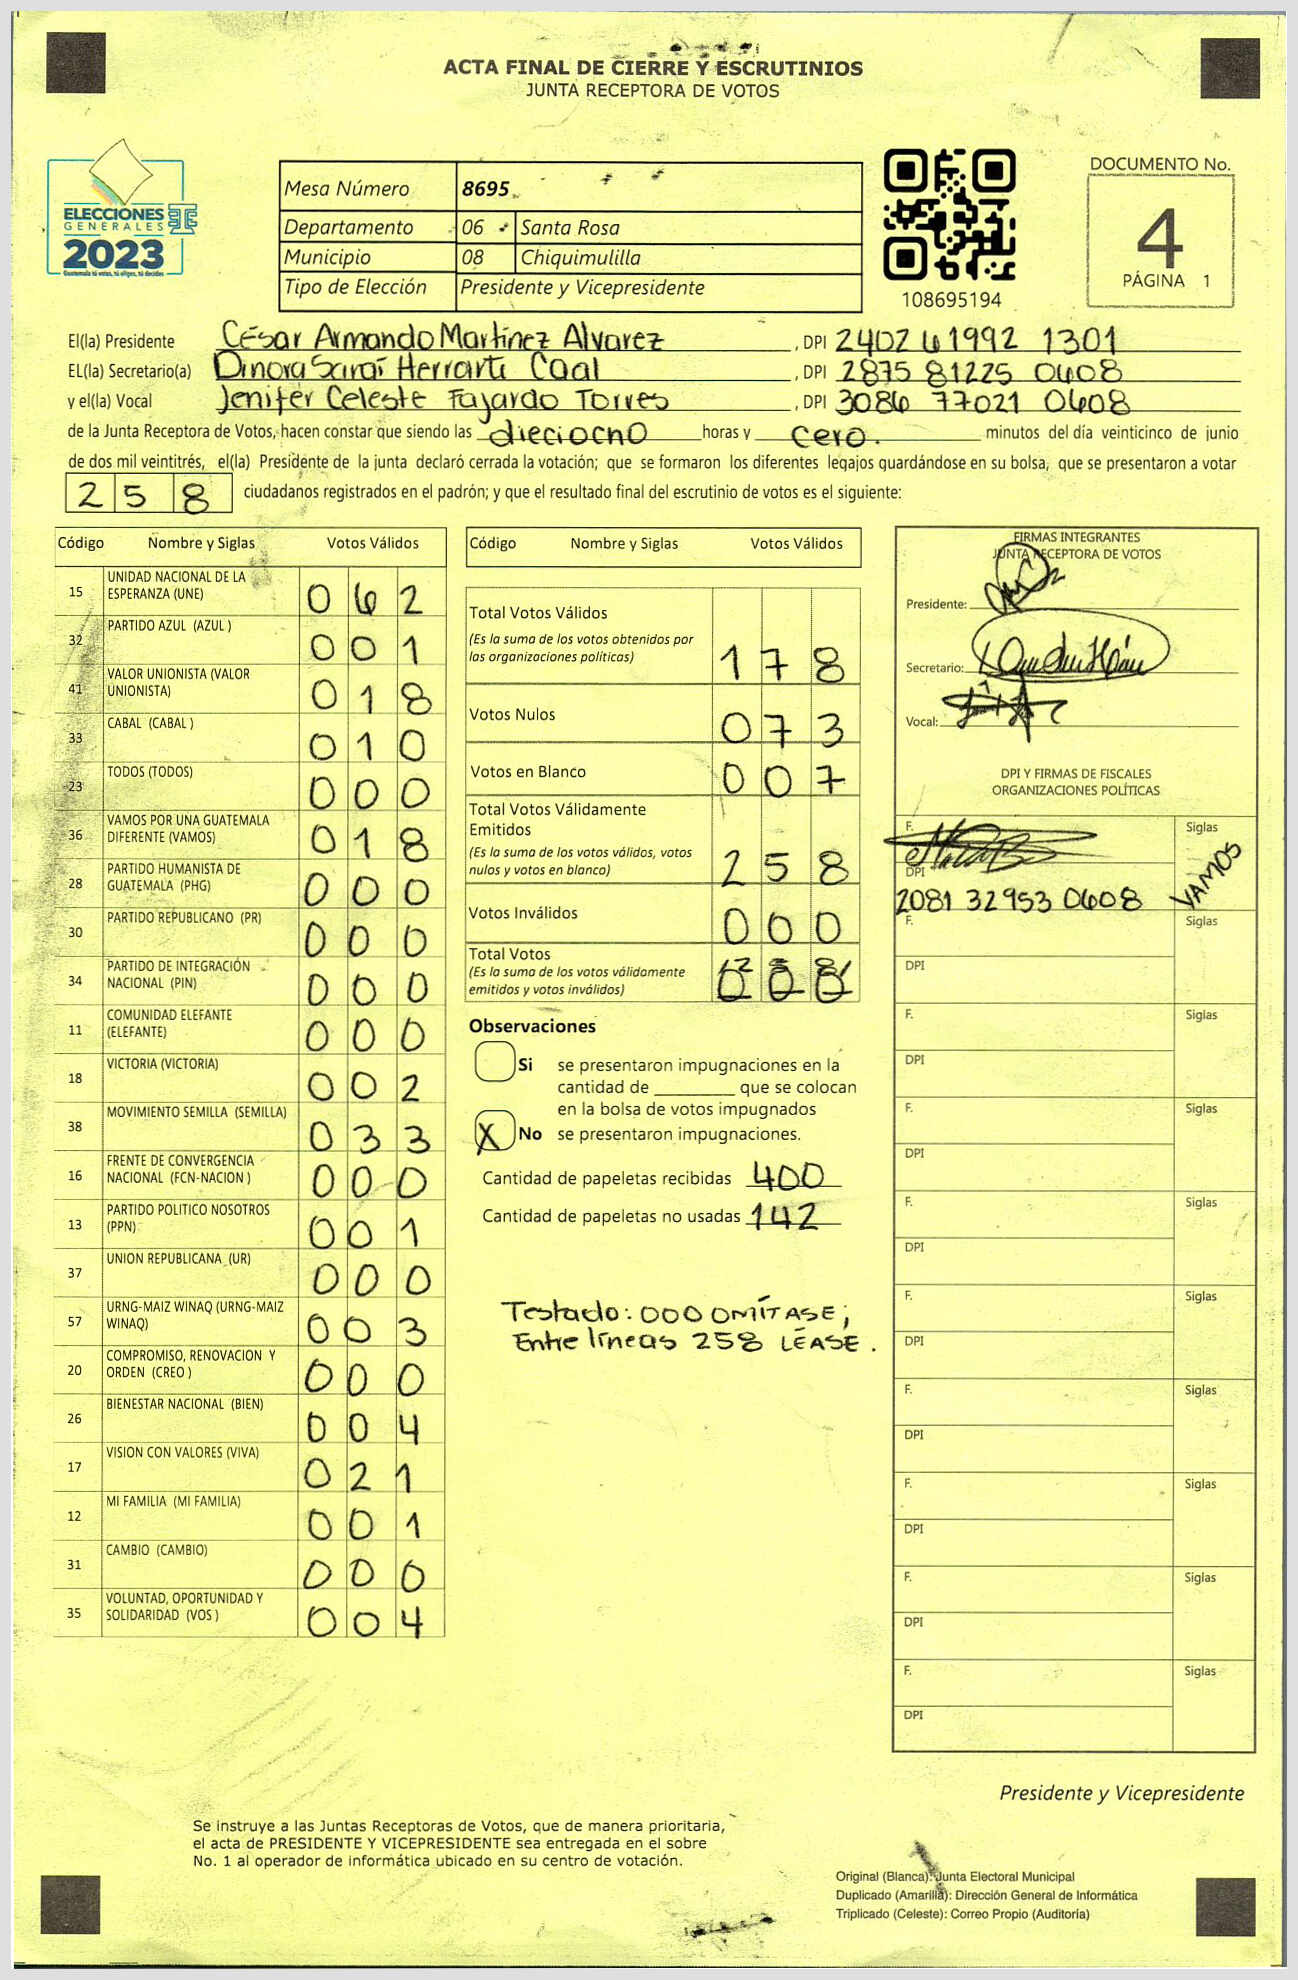 ACTA FINAL DE CIERRE Y ESCRUTINIOS
JUNTA RECEPTORA DE VOTOS
ELECCIONES
GENERALES
2023
Guatemala tú votas, tú eliges, tú decides
Mesa Número 8695
Departamento 06 Santa Rosa
Municipio 08 Chiquimulilla
Tipo de Elección Presidente y Vicepresidente
108695194
DOCUMENTO No.
4
PÁGINA 1
El(la) Presidente César Armando Martínez Alvarez, DPI 2402 61992 1301
EL(la) Secretario(a) Dinora Saraí Herrarte Caal, DPI 2875 81225 0608
y el(la) Vocal Jenifer Celeste Fajardo Torres, DPI 3086 77021 0608
de la Junta Receptora de Votos, hacen constar que siendo las dieciocho horas y cero. minutos del día veinticinco de junio
de dos mil veintitrés, el(la) Presidente de la junta declaró cerrada la votación; que se formaron los diferentes legajos guardándose en su bolsa, que se presentaron a votar
258 ciudadanos registrados en el padrón; y que el resultado final del escrutinio de votos es el siguiente:
Código Nombre y Siglas Votos Válidos
15 UNIDAD NACIONAL DE LA
ESPERANZA (UNE) 062
32 PARTIDO AZUL (AZUL ) 001
41 VALOR UNIONISTA (VALOR
UNIONISTA) 018
33 CABAL (CABAL ) 010
23 TODOS (TODOS) 000
36 VAMOS POR UNA GUATEMALA
DIFERENTE (VAMOS) 018
28 PARTIDO HUMANISTA DE
GUATEMALA (PHG) 000
30 PARTIDO REPUBLICANO (PR) 000
34 PARTIDO DE INTEGRACIÓN
NACIONAL (PIN) 000
11 COMUNIDAD ELEFANTE
(ELEFANTE) 000
18 VICTORIA (VICTORIA) 002
38 MOVIMIENTO SEMILLA (SEMILLA) 033
16 FRENTE DE CONVERGENCIA
NACIONAL (FCN-NACION ) 000
13 PARTIDO POLITICO NOSOTROS
(PPN) 001
37 UNION REPUBLICANA (UR) 000
57 URNG-MAIZ WINAQ (URNG-MAIZ
WINAQ) 003
20 COMPROMISO, RENOVACION Y
ORDEN (CREO ) 000
26 BIENESTAR NACIONAL (BIEN) 004
17 VISION CON VALORES (VIVA) 021
12 MI FAMILIA (MI FAMILIA) 001
31 CAMBIO (CAMBIO) 000
35 VOLUNTAD, OPORTUNIDAD Y
SOLIDARIDAD (VOS ) 004
Código Nombre y Siglas Votos Válidos
Total Votos Válidos
(Es la suma de los votos obtenidos por
las organizaciones políticas) 178
Votos Nulos 073
Votos en Blanco 007
Total Votos Válidamente
Emitidos
(Es la suma de los votos válidos, votos
nulos y votos en blanco) 258
Votos Inválidos 000
Total Votos
(Es la suma de los votos válidamente
emitidos y votos inválidos) 000 258
Observaciones
Si se presentaron impugnaciones en la
cantidad de ________ que se colocan
en la bolsa de votos impugnados
X No se presentaron impugnaciones.
Cantidad de papeletas recibidas 400
Cantidad de papeletas no usadas 142
Testado: 000 OMÍTASE;
Entre líneas 258 LÉASE.
FIRMAS INTEGRANTES
JUNTA RECEPTORA DE VOTOS
Presidente:
Secretario:
Vocal:
DPI Y FIRMAS DE FISCALES
ORGANIZACIONES POLÍTICAS
F. Siglas
DPI VAMOS
2081 32953 0608
F. Siglas
DPI
F. Siglas
DPI
F. Siglas
DPI
F. Siglas
DPI
F. Siglas
DPI
F. Siglas
DPI
F. Siglas
DPI
F. Siglas
DPI
F. Siglas
DPI
Presidente y Vicepresidente
Se instruye a las Juntas Receptoras de Votos, que de manera prioritaria,
el acta de PRESIDENTE Y VICEPRESIDENTE sea entregada en el sobre
No. 1 al operador de informática ubicado en su centro de votación.
Original (Blanca): Junta Electoral Municipal
Duplicado (Amarilla): Dirección General de Informática
Triplicado (Celeste): Correo Propio (Auditoría)